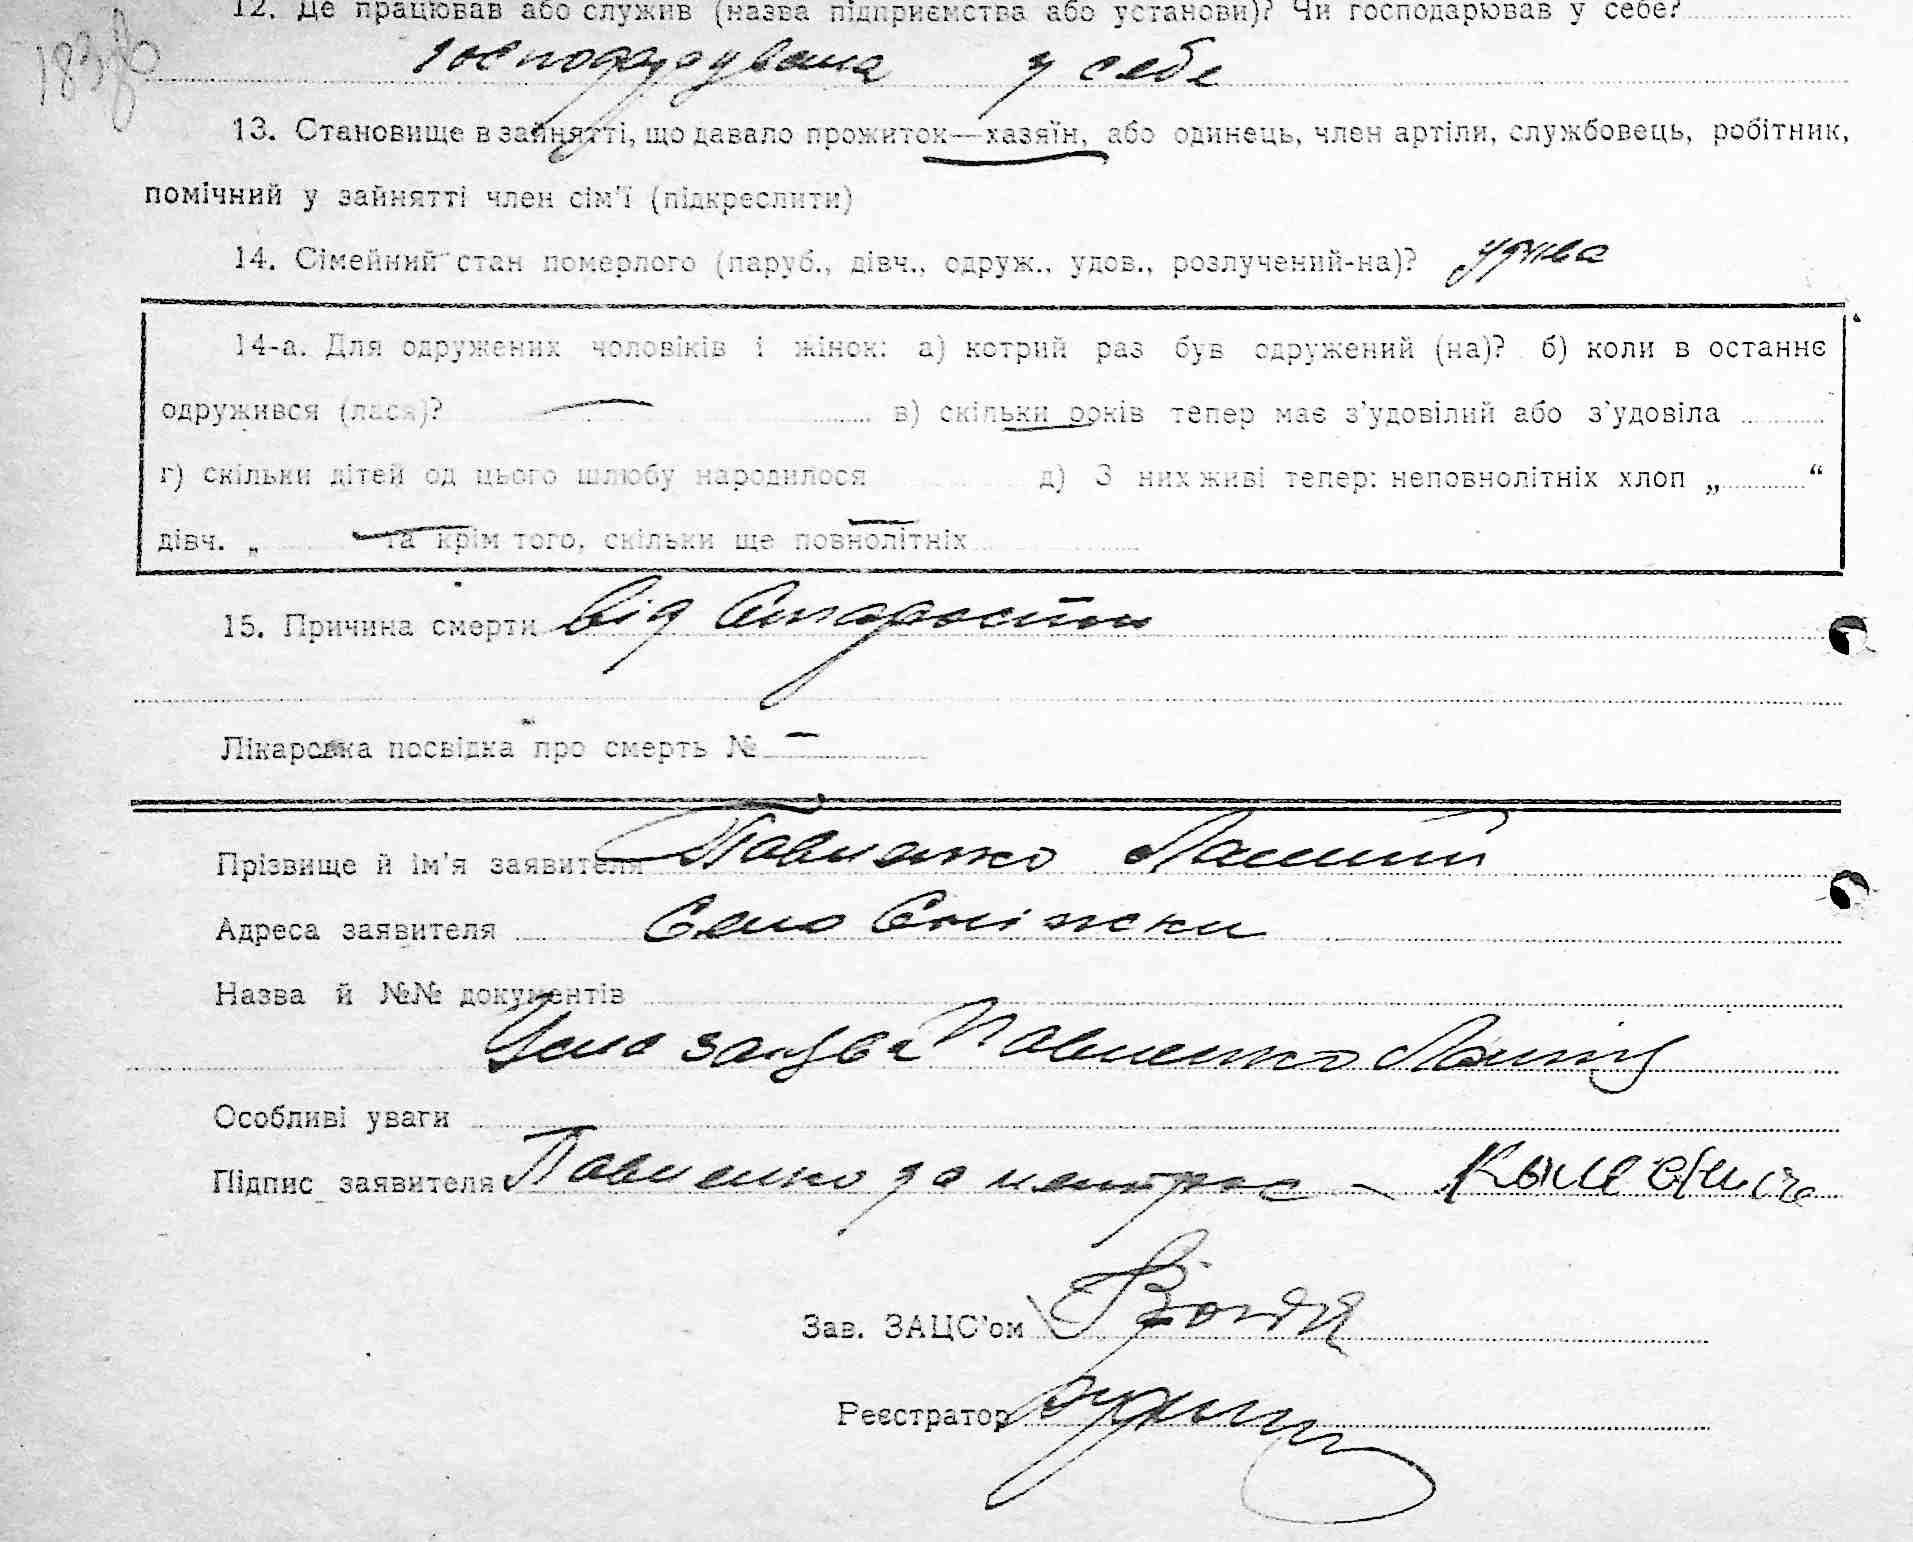 12. Де працював або служив (назва підприємства або установи)? Чи господарював у себе?
господарувала у себе
13. Становище в зайнятті, що давало прожиток—хазяїн, або одинець, член артіли, службовець, робітник,
помічний у зайнятті член сім'ї (підкреслити)
14. Сімейний стан померлого (паруб., дівч., одруж., удов., розлучений-на)? удова
14-а. Для одружених чоловіків і жінок: а) котрий раз був одружений (на)? б) коли в останнє
одружився (лася)? — в) скільки років тепер має з'удовілий або з'удовіла
г) скільки дітей од цього шлюбу народилося д) З них живі тепер: неповнолітніх хлоп „ “
дівч. „ — та крім того, скільки ще повнолітніх
15. Причина смерти від Старости
Лікарська посвідка про смерть № —
Прізвище й ім'я заявителя Павленко
Адреса заявителя Село
Назва й №№ документів
заява Павленко
Особливі уваги
Підпис заявителя Павленко за
Зав. ЗАЦС'ом
Реєстратор